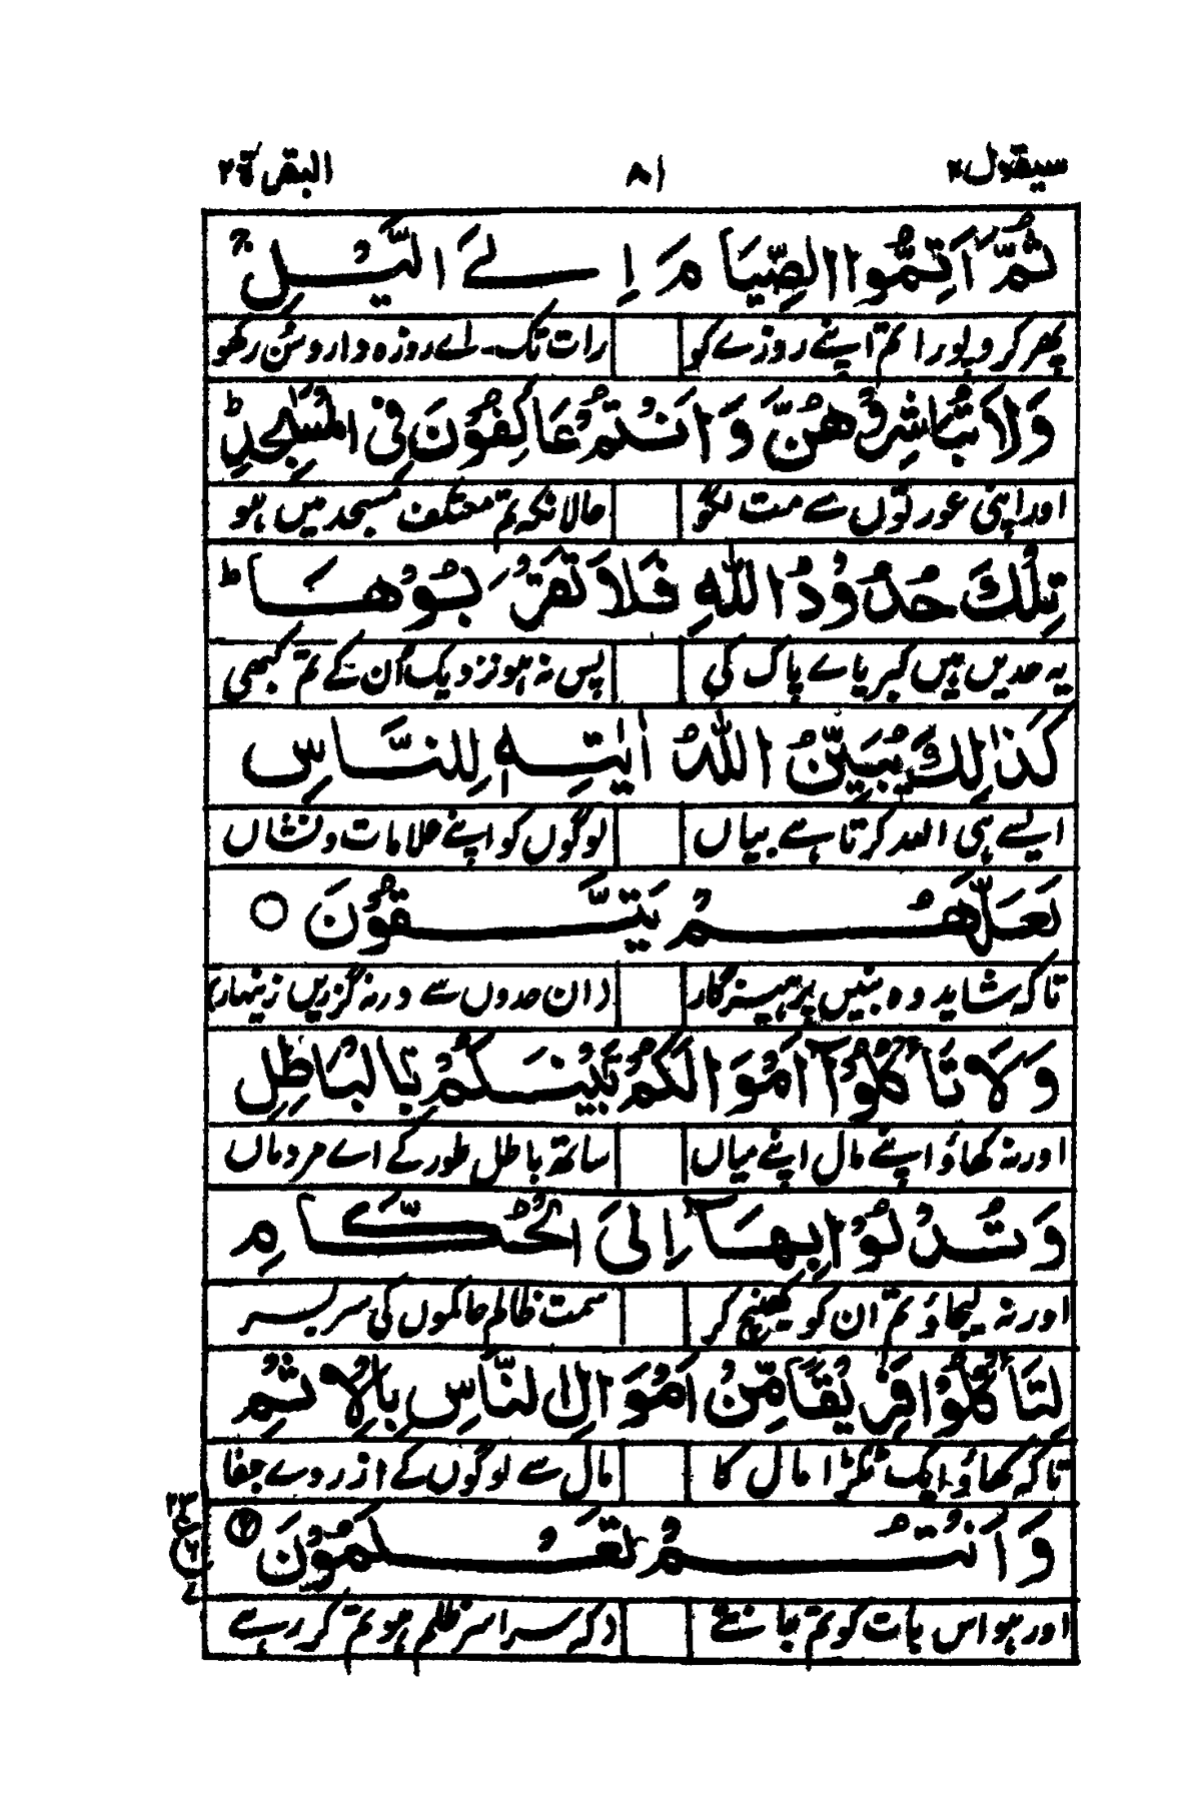 سیقول ۲ ۸۱ البقرة ۲
ثُمَّ اَتِمُّوا الصِّیَامَ اِلَے الَّیْلِ ۚ
پھر کرو پورا تم اپنے روزے کو رات تک۔ اے روزہ دار و سُن رکھو
وَلَا تُبَاشِرُوْهُنَّ وَاَنْتُمْ عَاکِفُوْنَ فِی الْمَسٰجِدِ ؕ
اور اپنی عورتوں سے مت لگو حالانکہ تم معتکف مسجد میں ہو
تِلْکَ حُدُوْدُ اللّٰهِ فَلَا تَقْرَبُوْهَا ؕ
یہ حدیں ہیں کبریائے پاک کی پس نہ ہو نزدیک اُن کے تم کبھی
کَذٰلِکَ یُبَیِّنُ اللّٰهُ اٰیٰتِهٖ لِلنَّاسِ
ایسے ہی اللہ کرتا ہے بیاں لوگوں کو اپنے علامات و نشاں
لَعَلَّهُمْ یَتَّقُوْنَ ○
تا کہ شاید وہ بنیں پرہیزگار (ان حدوں سے ورنہ گزریں زینہار)
وَلَا تَاْکُلُوْۤا اَمْوَالَکُمْ بَیْنَکُمْ بِالْبَاطِلِ
اور نہ کھاؤ اپنے مال اپنے میاں ساتھ باطل طور کے اے مردماں
وَتُدْلُوْا بِهَاۤ اِلَی الْحُکَّامِ
اور نہ لیجاؤ تم ان کو کھینچ کر سمت ظالم حاکموں کی سر بسر
لِتَاْکُلُوْا فَرِیْقًا مِّنْ اَمْوَالِ النَّاسِ بِالْاِثْمِ
تا کہ کھاؤ ایک ٹکڑا مال کا مال سے لوگوں کے از روے جفا
وَاَنْتُمْ تَعْلَمُوْنَ
۲۳ ع ۷
اور ہو اس بات کو تم جانتے (کہ سراسر ظلم ہو تم کر رہے